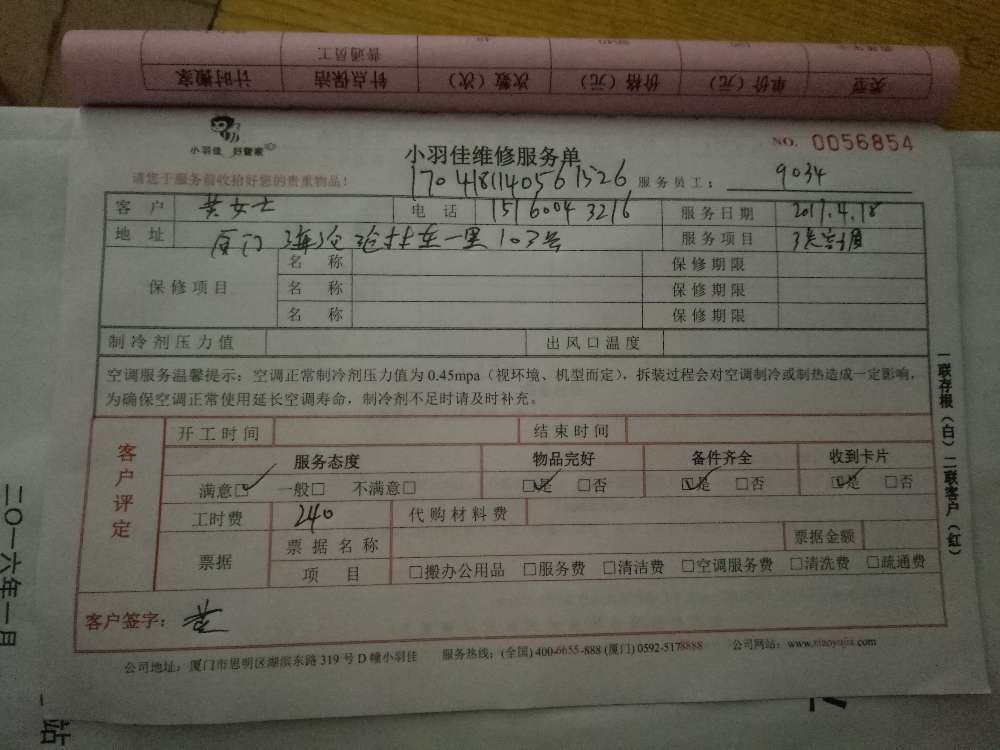 普通员工
类型 单价（元） 价格（元） 次数（次） 针点保洁 计时搬家
小羽佳 好管家
小羽佳维修服务单
NO. 0056854
请您于服务前收拾好您的贵重物品！
1704181140561526
服务员工： 9034
客户 黄女士 电话 15160043216 服务日期 2017.4.18
地址 厦门海沧沧林东一里103号 服务项目
保修项目 名称 保修期限
名称 保修期限
名称 保修期限
制冷剂压力值 出风口温度
空调服务温馨提示：空调正常制冷剂压力值为0.45mpa（视环境、机型而定），拆装过程会对空调制冷或制热造成一定影响，
为确保空调正常使用延长空调寿命，制冷剂不足时请及时补充。
客户评定
开工时间 结束时间
服务态度 物品完好 备件齐全 收到卡片
满意□✓ 一般□ 不满意□ □✓是 □否 □✓是 □否 □✓是 □否
工时费 240 代购材料费
票据 票据名称 票据金额
项目 □搬办公用品 □服务费 □清洁费 □空调服务费 □清洗费 □疏通费
客户签字： 黄
公司地址：厦门市思明区湖滨东路319号D幢小羽佳 服务热线：(全国) 400-6655-888 (厦门) 0592-5178888 公司网站：www.xiaoyujia.com
一联存根（白）二联客户（红）
二〇一六年一月
站